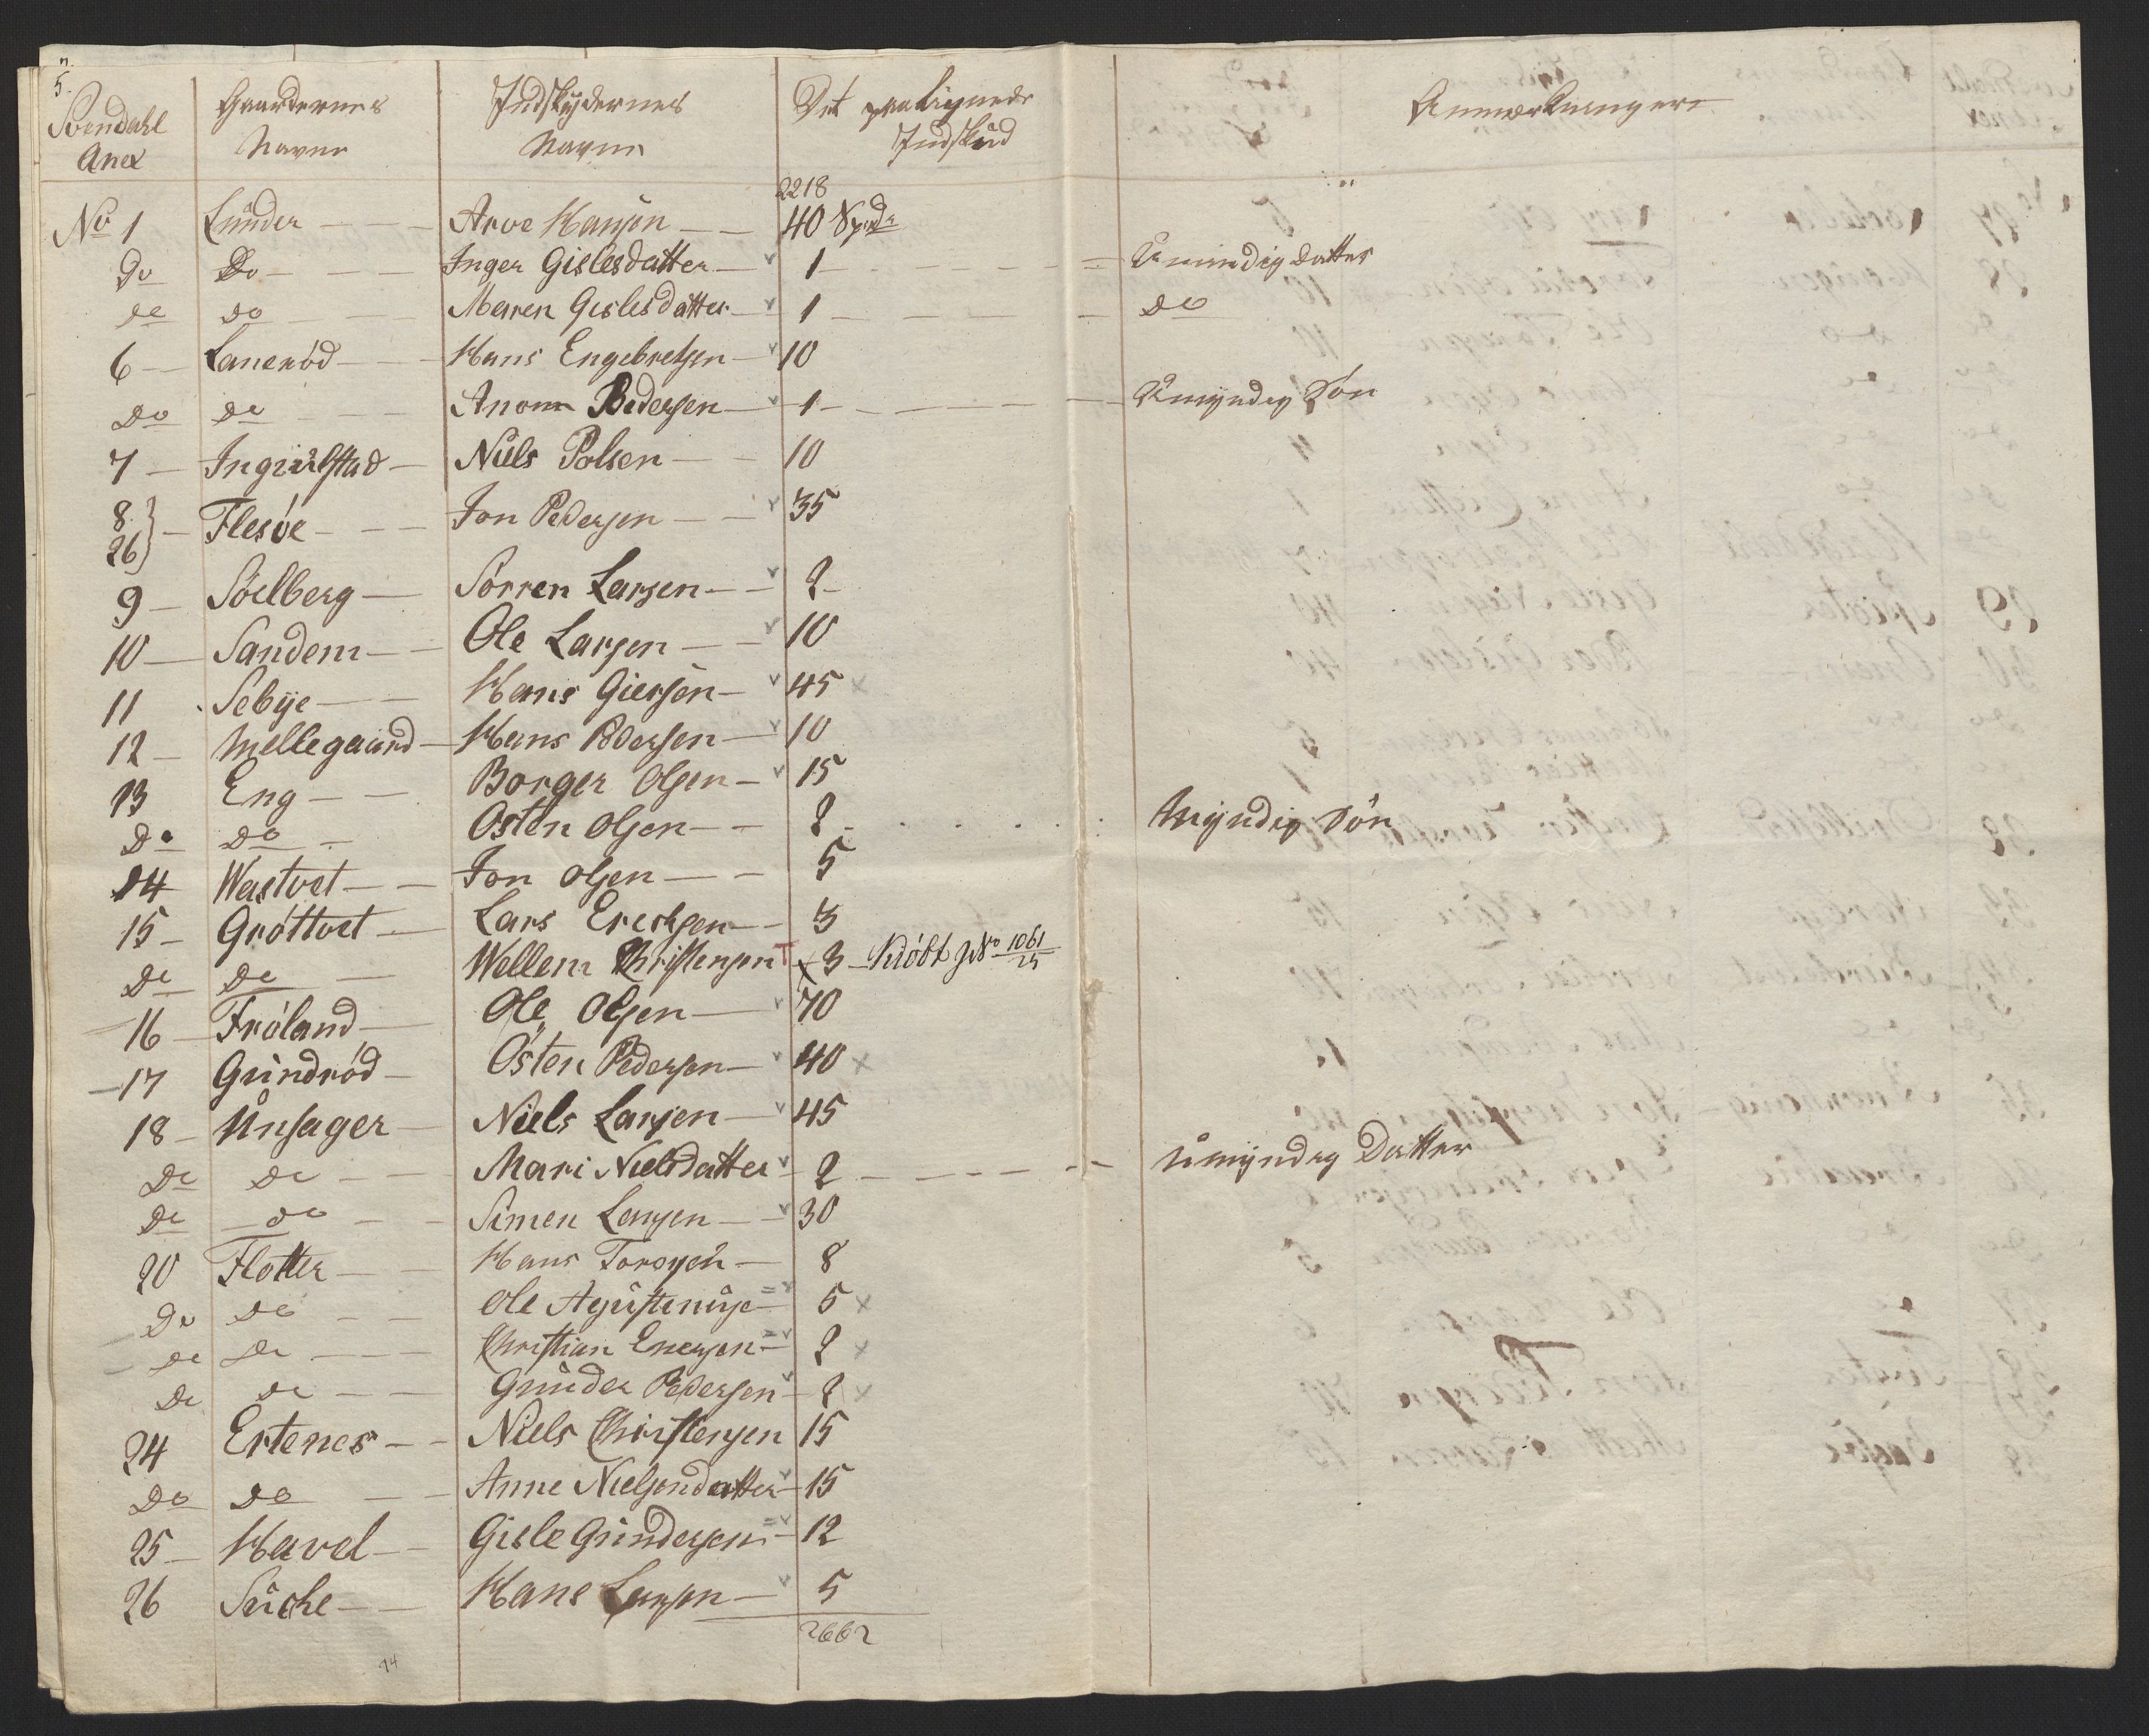 5.
Svendahl Anex | Gaardernes Navne | Indskydernes Navne | Det paalignede Indskud | Anmærkninger
2218
No 1 Lunder — Arve Hansen — 40 Spd
Do Do — Inger Gislesdatter — 1 — Umindig datter
do do — Maren Gislesdatter — 1 — do
6 — Lanerød — Hans Engebretsen — 10
do do — Anon Pedersen — 1 — Umyndig Søn
7 — Ingiulstad — Niels Polsen — 10
8 26 } — Flesøe — Jon Pedersen — 35
9 — Søelberg — Sørren Larsen — 2
10 — Sandem — Ole Larsen — 10
11 Sebye — Hans Giersen — 45 x
12 — Mellegaard — Hans Pedersen — 10
13 Eng — Borger Olsen — 15
Do do — Østen Olsen — 2 Myndig Søn
14 Wastvet — Jon Olsen — 5
15 — Grøttvet — Lars Erechsen — 3
do do — Wellem Christensen T x 3 — Kiøbt No 1061/25
16 — Frøland — Ole Olsen — 70
17 Gundrød — Østen Pedersen — 40 x
18 — Unsager — Niels Larsen — 45
do do — Mari Nielsdatter — 2 — umyndig Datter
do — do — Simen Larsen — 30
20 Flotter — Hans Toresen — 8
Do do — Ole Agustinusen — 5 x
do do — Christian Enersen — 2 x
do do — Gunder Pedersen — 2 x
24 Ertenes — Niels Christensen 15
do do — Anne Nielsendatter — 15
25 — Havel — Gisle Gundersen — 12
26 Suche — Hans Larsen — 5
2662
14